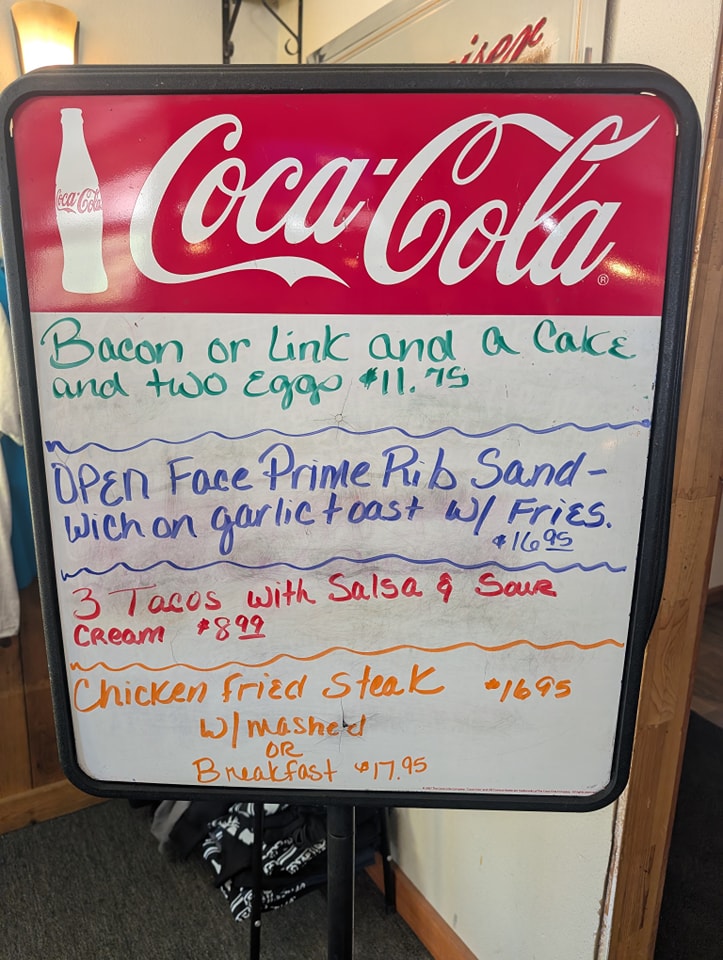 iser
Coca-Cola
Coca-Cola
®
Bacon or Link and a Cake
and two Eggs $11.75
OPEN Face Prime Rib Sand-
wich on garlic toast w/ Fries.
$16 95
3 Tacos with Salsa & Sour
Cream $8 99
Chicken fried Steak $16 95
w/ mashed
OR
Breakfast $17.95